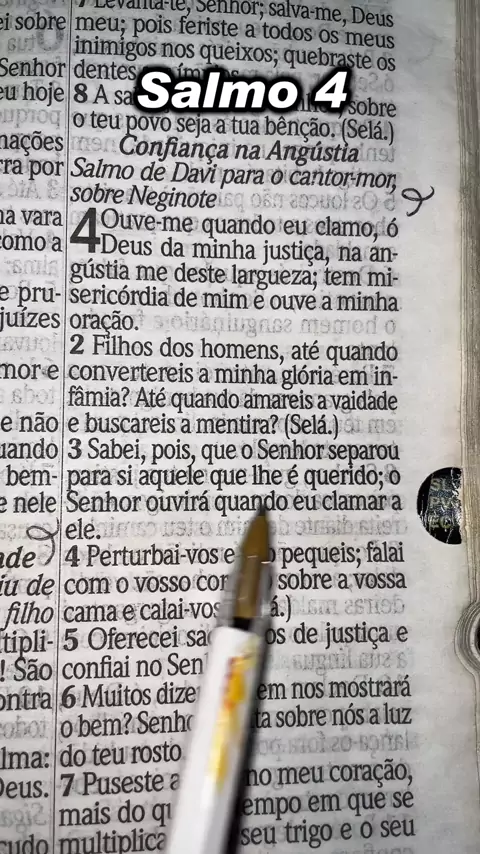 7 Levanta-te, Senhor; salva-me, Deus
meu; pois feriste a todos os meus
inimigos nos queixos; quebraste os
dentes
Salmo 4
8 A sa sobre
o teu povo seja a tua bênção. (Selá.)
Confiança na Angústia
Salmo de Davi para o cantor-mor,
sobre Neginote
4 Ouve-me quando eu clamo, ó
Deus da minha justiça, na an-
gústia me deste largueza; tem mi-
sericórdia de mim e ouve a minha
oração.
2 Filhos dos homens, até quando
convertereis a minha glória em in-
fâmia? Até quando amareis a vaidade
e buscareis a mentira? (Selá.)
3 Sabei, pois, que o Senhor separou
para si aquele que lhe é querido; o
Senhor ouvirá quando eu clamar a
ele.
4 Perturbai-vos e pequeis; falai
com o vosso cor sobre a vossa
cama e calai-vos á.)
5 Oferecei sac os de justiça e
confiai no Sen
6 Muitos dize em nos mostrará
o bem? Senho ta sobre nós a luz
do teu rosto.
7 Puseste a no meu coração,
mais do qu empo em que se
multiplica seu trigo e o seu
ei sobre
Senhor
eu hoje
nações
rra por
na vara
como a
e pru-
juízes
mor e
e não
uando
bem-
e nele
ade
iu de
filho
tipli-
! São
ontra
lma:
Deus.
cudo